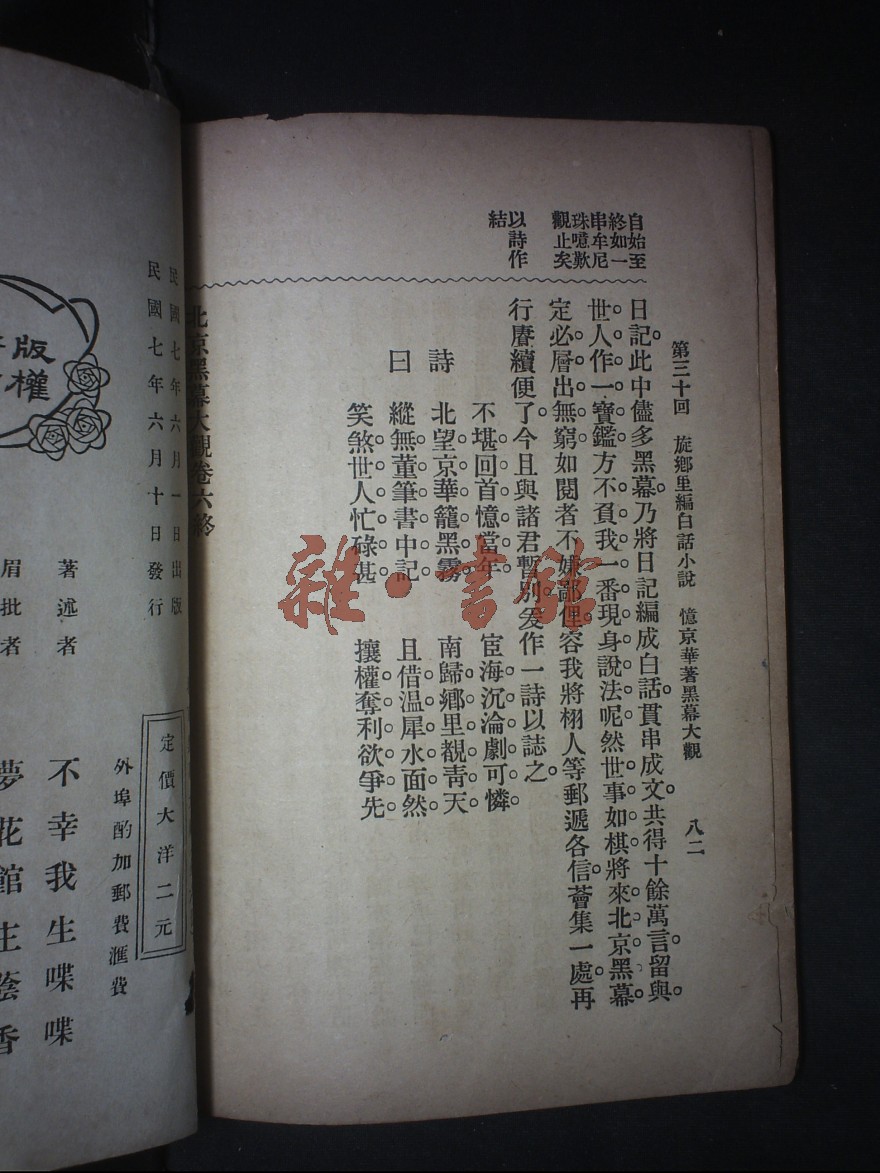 第三十回　旋鄉里編白話小說　憶京華著黑幕大觀　八二
自始至
終如一
串牟尼
珠噫歎
觀止矣
以詩作
結
日記。此中儘多黑幕。乃將日記編成白話。貫串成文。共得十餘萬言。留與。
世人作一寶鑑。方不負我一番現身說法呢。然世事如棋。將來北京黑幕。
定必層出無窮。如閱者不嫌鄙俚。容我將栩人等郵遞各信。薈集一處。再
行賡續便了。今且與諸君暫別。爰作一詩以誌之。
不堪回首憶當年。　宦海沉淪劇可憐。
詩　北望京華籠黑霧。　南歸鄉里覩靑天。
曰　縱無董筆書中記。　且借温犀水面然。
笑煞世人忙碌甚。　攘權奪利欲爭先。
北京黑幕大觀卷六終
民國七年六月一日出版
民國七年六月十日發行
定價大洋二元
外埠酌加郵費滙費
版權
著述者　不幸我生喋喋
眉批者　夢花館主蔭香
雜·書館